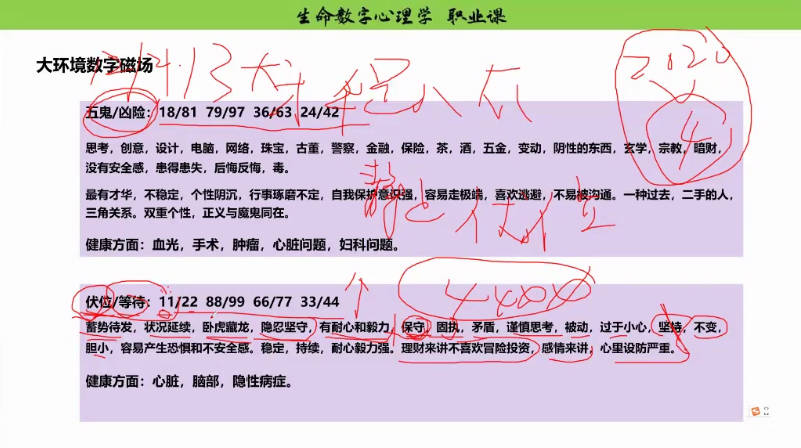 生命数字心理学 职业课
大环境数字磁场
五鬼/凶险：18/81 79/97 36/63 24/42
思考，创意，设计，电脑，网络，珠宝，古董，警察，金融，保险，茶，酒，五金，变动，阴性的东西，玄学，宗教，暗财，
没有安全感，患得患失，后悔反悔，毒。
最有才华，不稳定，个性阴沉，行事琢磨不定，自我保护意识强，容易走极端，喜欢逃避，不易被沟通。一种过去，二手的人，
三角关系。双重个性，正义与魔鬼同在。
健康方面：血光，手术，肿瘤，心脏问题，妇科问题。
伏位/等待：11/22 88/99 66/77 33/44
蓄势待发，状况延续，卧虎藏龙，隐忍坚守，有耐心和毅力，保守，固执，矛盾，谨慎思考，被动，过于小心，坚持，不变，
胆小，容易产生恐惧和不安全感。稳定，持续，耐心毅力强。理财来讲不喜欢冒险投资，感情来讲，心里设防严重。
健康方面：心脏，脑部，隐性病症。
2020
4
静
伏位